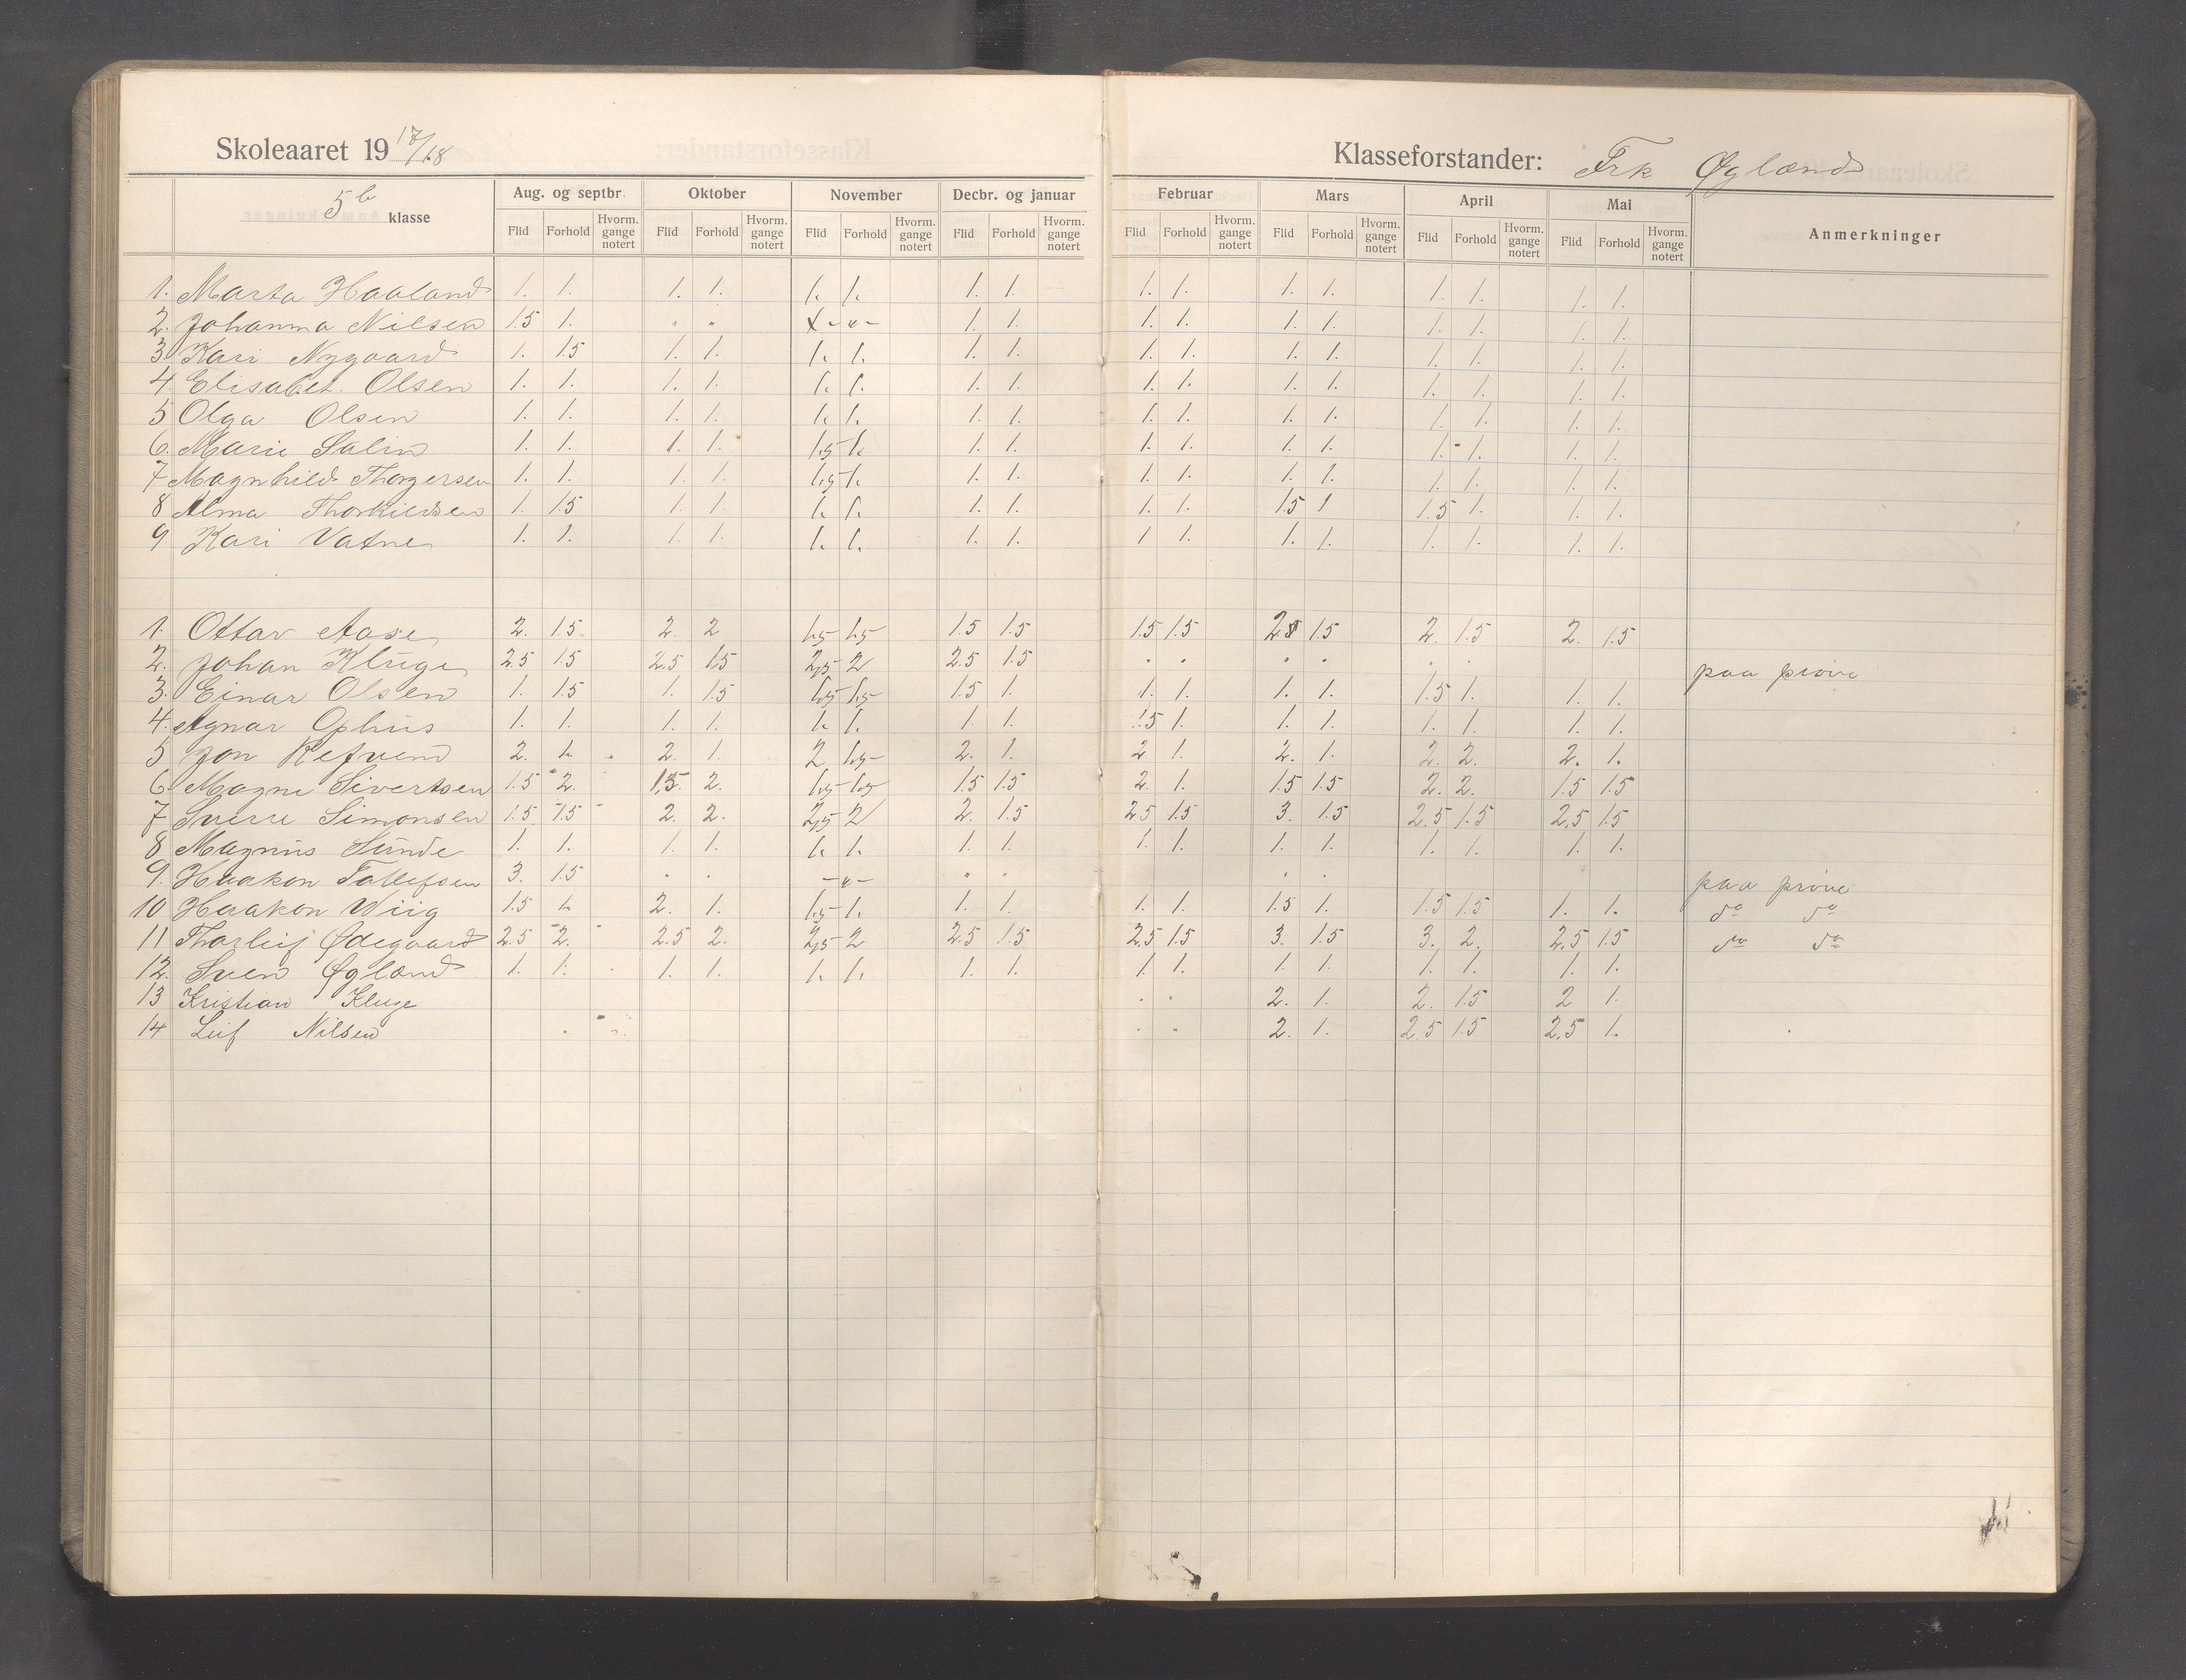 Skoleaaret 19 17/18
Klasseforstander: Frk Øglænd
5b klasse
Aug. og septbr. Oktober November Decbr. og januar Februar Mars April Mai Anmerkninger
Flid Forhold Hvorm. gange notert Flid Forhold Hvorm. gange notert Flid Forhold Hvorm. gange notert Flid Forhold Hvorm. gange notert Flid Forhold Hvorm. gange notert Flid Forhold Hvorm. gange notert Flid Forhold Hvorm. gange notert Flid Forhold Hvorm. gange notert
1. Marta Haaland 1. 1. 1. 1. 1. 1. 1. 1. 1. 1. 1. 1. 1. 1. 1. 1.
2. Johanna Nilsen 1.5 1. " " -"- 1. 1. 1. 1. 1. 1. 1. 1. 1. 1.
3. Kari Nygaard 1. 1.5 1. 1. 1. 1. 1. 1. 1. 1. 1. 1. 1. 1. 1. 1.
4. Elisabet Olsen 1. 1. 1. 1. 1. 1. 1. 1. 1. 1. 1. 1. 1. 1. 1. 1.
5 Olga Olsen 1. 1. 1. 1. 1. 1. 1. 1. 1. 1. 1. 1. 1. 1. 1. 1.
6. Marie Salin 1. 1. 1. 1. 1.5 1. 1. 1. 1. 1. 1. 1. 1. 1. 1. 1.
7 Magnhild Thorgersen 1. 1. 1. 1. 1.5 1. 1. 1. 1. 1. 1. 1. 1. 1. 1. 1.
8 Alma Thorkildsen 1. 1.5 1. 1. 1. 1. 1. 1. 1. 1. 1.5 1 1.5 1. 1. 1.
9. Kari Vatne 1. 1. 1. 1. 1. 1. 1. 1. 1 1. 1. 1. 1. 1. 1. 1.
1. Ottar Aase 2. 1.5 2. 2 1.5 1.5 1.5 1.5 1.5 1.5 2 1.5 2. 1.5 2. 1.5
2. Johan Kluge 2.5 1.5 2.5 1.5 2,5 2 2.5 1.5 " " " " " " paa prøve
3. Einar Olsen 1. 1.5 1. 1.5 1.5 1.5 1.5 1. 1. 1. 1. 1. 1.5 1. 1. 1.
4. Agnar Ophus 1. 1. 1. 1. 1. 1. 1. 1. 1.5 1. 1. 1. 1. 1. 1. 1.
5 Jon Refvem 2. 1. 2. 1. 2 1.5 2. 1. 2 1. 2. 1. 2. 2. 2. 1.
6. Magne Sivertsen 1.5 2. 1.5 2. 1.5 1.5 1.5 1.5 2. 1. 1.5 1.5 2. 2. 1.5 1.5
7 Sverre Simonsen 1.5 1.5 2. 2. 2,5 2 2. 1.5 2.5 1.5 3. 1.5 2.5 1.5 2.5 1.5
8 Magnus Sunde 1. 1. 1. 1. 1. 1. 1. 1. 1. 1. 1. 1. 1. 1. 1. 1.
9. Haakon Tollefsen 3. 1.5 " " -"- " " " " paa prøve
10 Haakon Wiig 1.5 1. 2. 1. 1.5 1. 1. 1. 1. 1. 1.5 1. 1.5 1.5 1. 1. do do
11 Thorleif Ødegaard 2.5 2. 2.5 2. 2,5 2 2.5 1.5 2.5 1.5 3. 1.5 3. 2. 2.5 1.5 do do
12. Sven Øglænd 1. 1. 1. 1. 1. 1. 1. 1. 1. 1. 1. 1. 1. 1. 1. 1.
13 Kristian Kluge " " 2. 1. 2. 1.5 2 1.
14 Leif Nilsen " " 2. 1. 2.5 1.5 2.5 1.